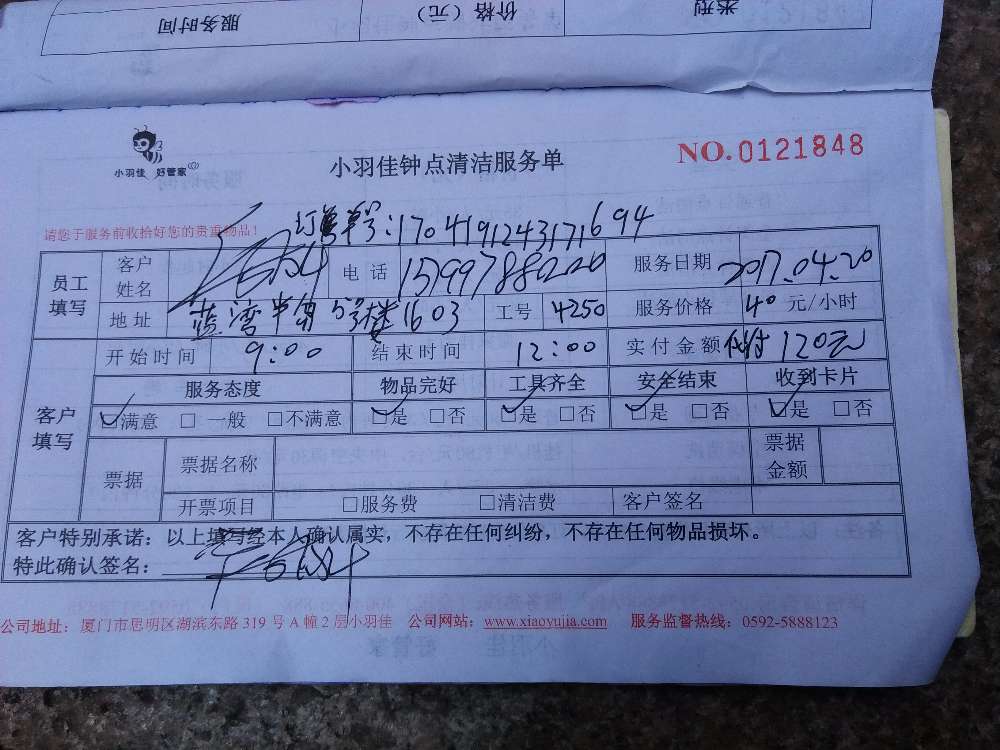 服务时间 价格（元） 类型
小羽佳 好管家
小羽佳钟点清洁服务单 NO.0121848
订单号:1704191243171694
请您于服务前收拾好您的贵重物品！
员工填写 客户姓名 电话 服务日期 2017.04.20
地址 蓝湾半岛 1603 工号 4250 服务价格 40 元/小时
开始时间 9:00 结束时间 12:00 实付金额 代付120元
客户填写 服务态度 物品完好 工具齐全 安全结束 收到卡片
☑满意 □一般 □不满意 ☑是 □否 ☑是 □否 ☑是 □否 ☑是 □否
票据 票据名称 票据金额
开票项目 □服务费 □清洁费 客户签名
客户特别承诺：以上填写经本人确认属实，不存在任何纠纷，不存在任何物品损坏。
特此确认签名：
公司地址：厦门市思明区湖滨东路 319 号 A 幢 2 层小羽佳 公司网站：www.xiaoyujia.com 服务监督热线：0592-5888123